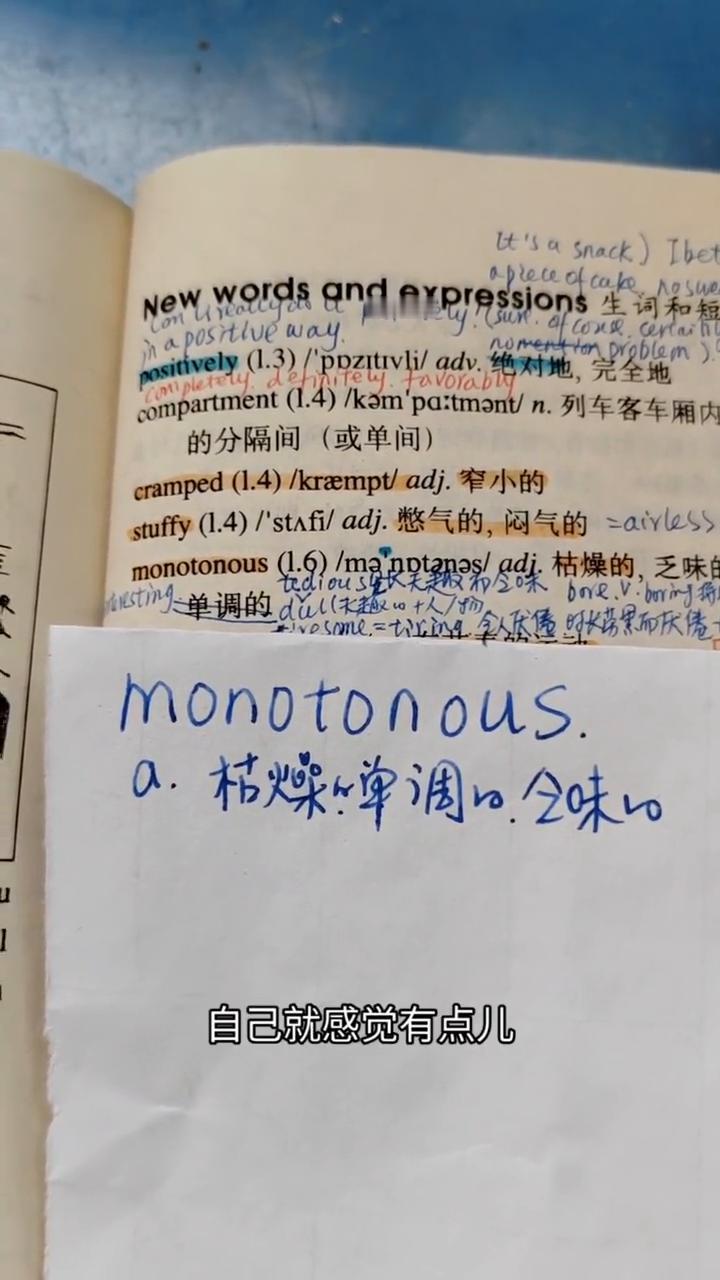 It's a snack) I bet
a piece of cake. no swe
New words and expressions 生词和短
(sure. of course. certainl
in a positive way.
no mention problem).
positively (1.3) /ˈpɒzɪtɪvli/ adv. 绝对地, 完全地
completely. definitely. favorably
compartment (1.4) /kəmˈpɑːtmənt/ n. 列车客车厢内
的分隔间（或单间）
cramped (1.4) /kræmpt/ adj. 窄小的
stuffy (1.4) /ˈstʌfi/ adj. 憋气的, 闷气的 =airless
monotonous (1.6) /məˈnɒtənəs/ adj. 枯燥的, 乏味的
tedious 无趣 bore. v. boring
单调的 dull
=tiring 令人厌倦
monotonous.
a. 枯燥的.单调的.乏味的
自己就感觉有点儿